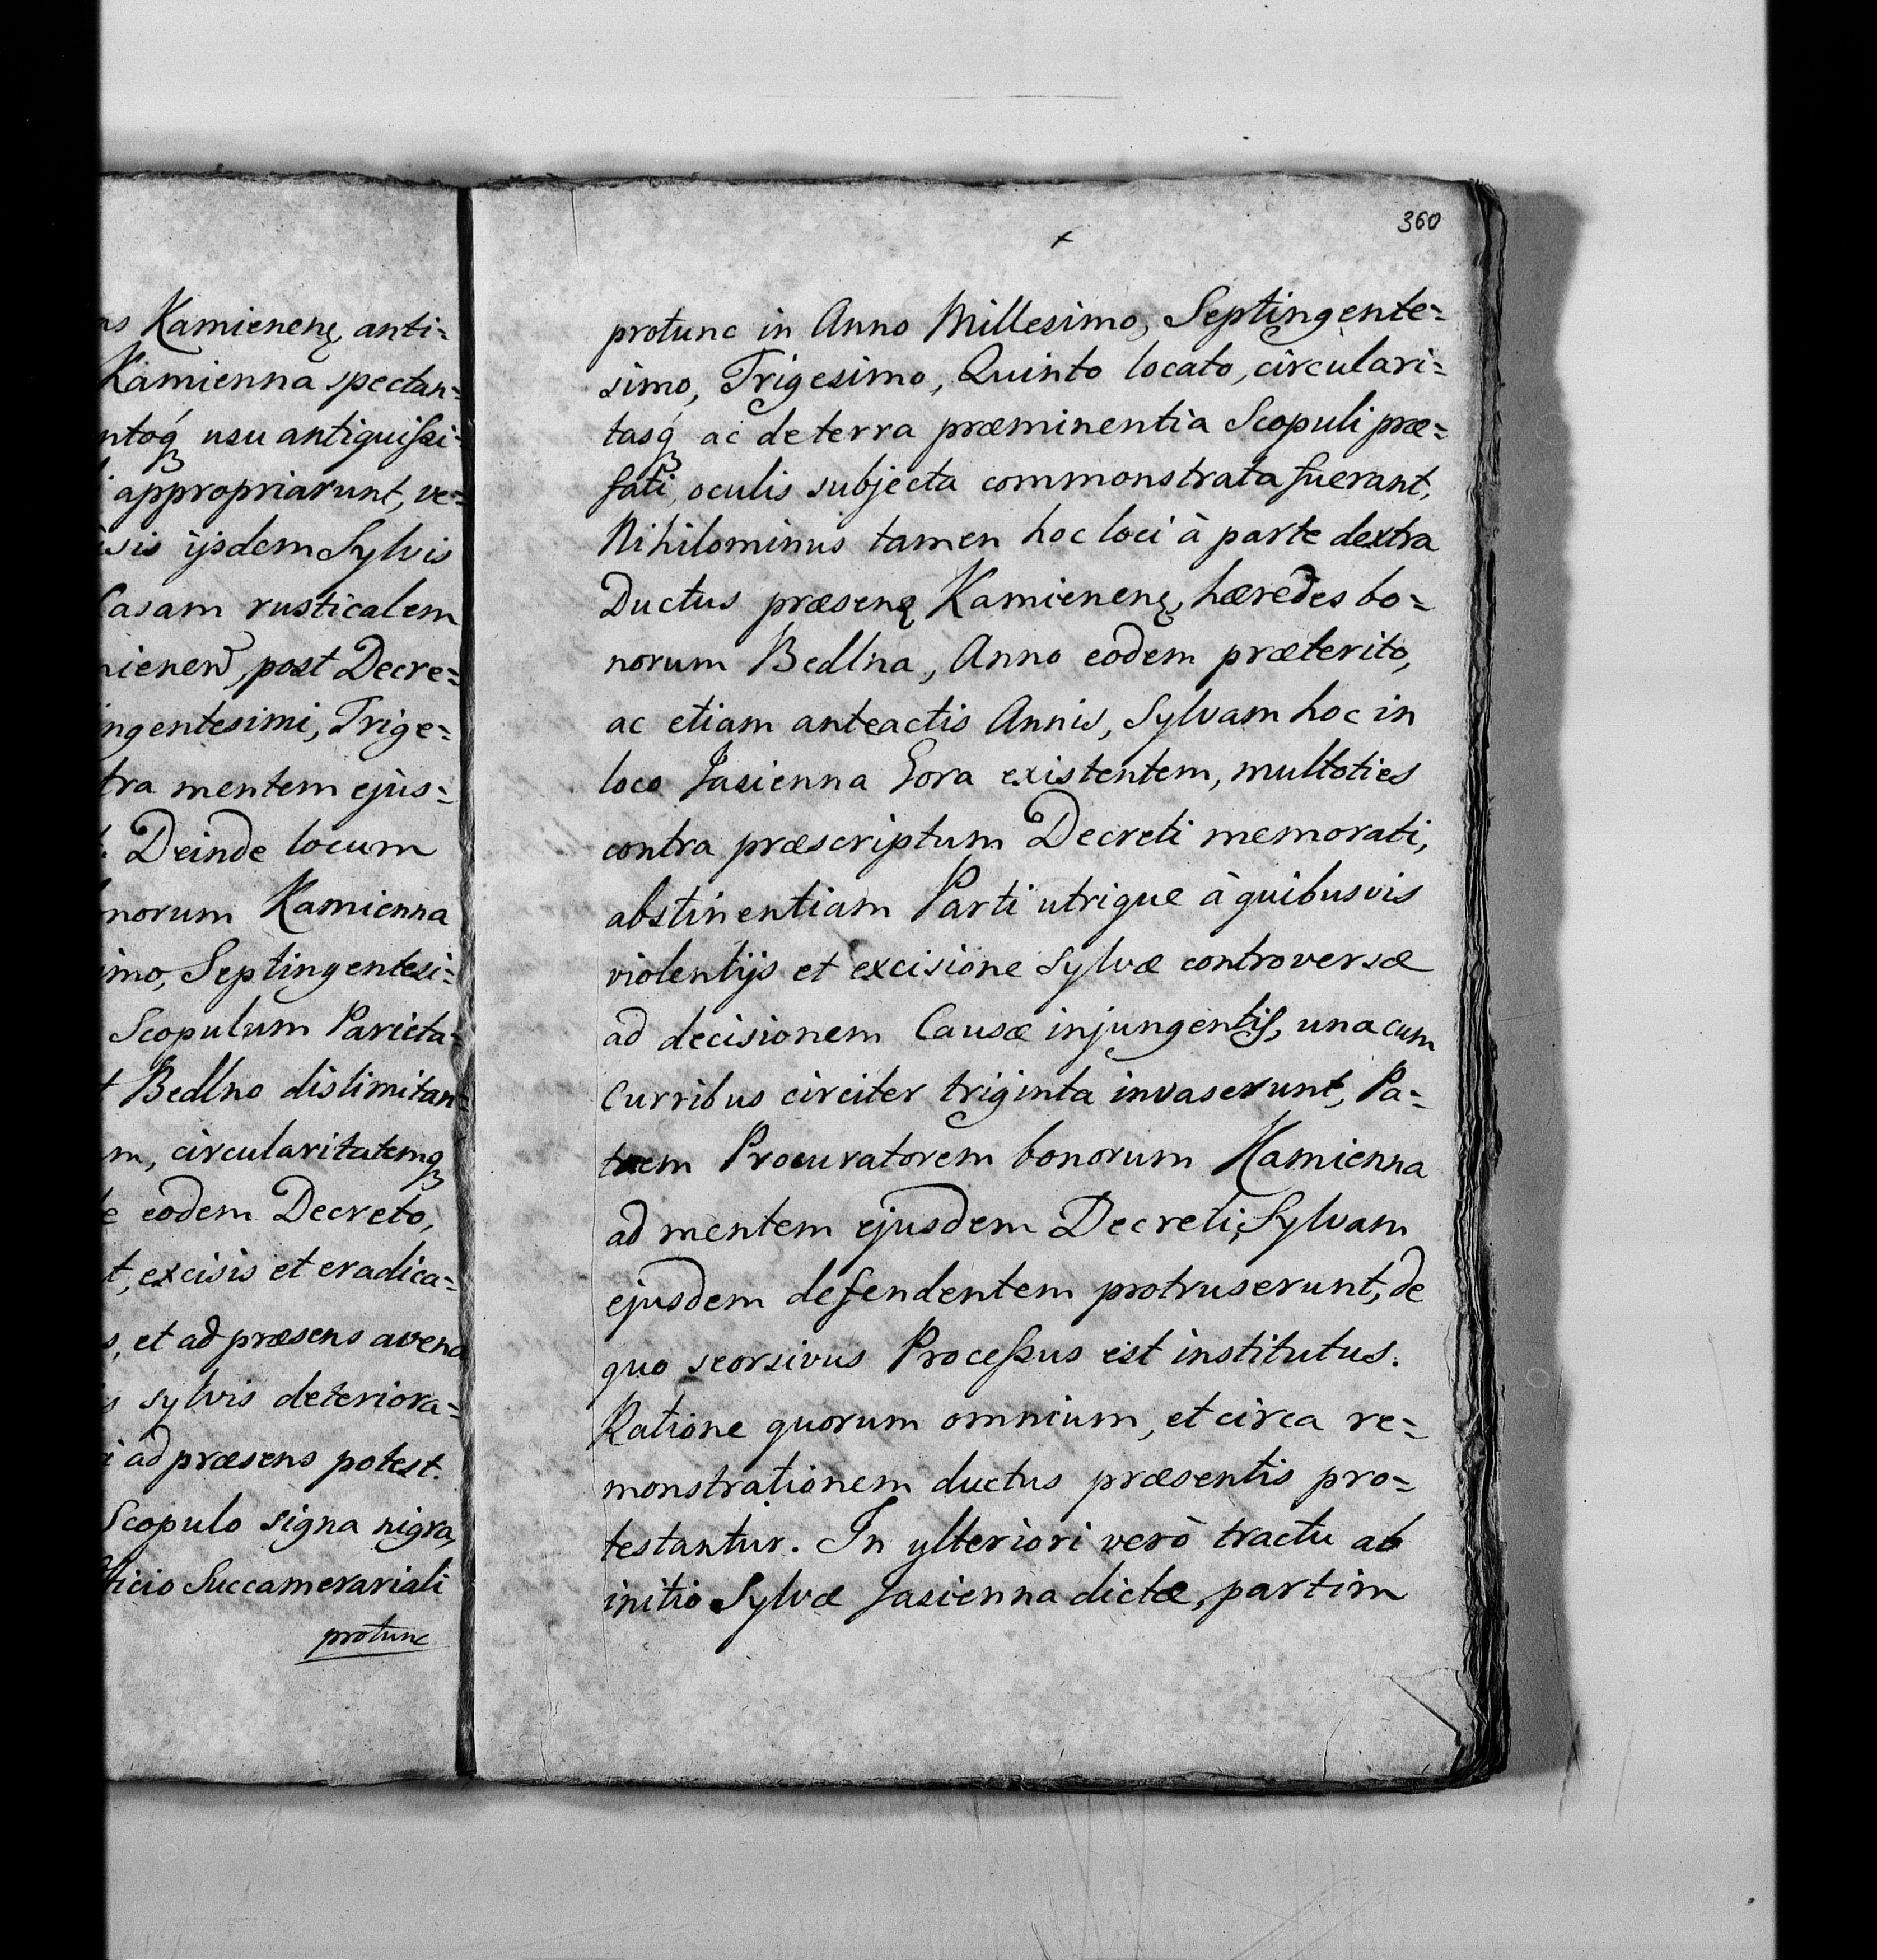 ns Kamienenę, anti=
Kamienna spectan=
ntoq́ʒ usu antiquißi=
appropriarunt, ve=
isis ijsdem Sylvis
Casam rusticalem
nienen, post Decre=
ingentesimi, Trige=
tra mentem ejus=
Deinde locum
norum Kamienna
imo, Septingentesi=
Scopulum Parieta=
t Bedlno dislimitan=
m, circularitatemqʒ
e eodem Decreto,
t, excisis et eradica=
s, et ad præsens avena
s sylvis deteriora=
i ad præsens potest.
Scopulo signa nigra,
ficio Succamerariali
protunc
360
protunc in Anno Millesimo, Septingente=
simo, Trigesimo, Quinto locato, circulari=
tasq́ʒ ac de terra præminentia Scopuli præ=
fati, oculis subjecta commonstrata fuerant,
Nihilominus tamen hoc loci à parte dextra
Ductus præsenę Kamienenę, hæredes bo=
norum Bedlna, Anno eodem præterito,
ac etiam anteactis Annis, Sylvam hoc in
loco Jasienna Gora existentem, multoties
contra præscriptum Decreti memorati,
abstinentiam Parti utrique à quibusvis
violentijs et excisione Sylvæ controversæ
ad decisionem Causæ injungentis, una cum
Curribus circiter triginta invaserunt, Pa=
trem Procuratorem bonorum Kamienna
ad mentem ejusdem Decreti, Sylvam
ejusdem defendentem protruserunt, de
quo seorsivus Proceßus est institutus.
Ratione quorum omnium, et circa re=
monstrationem ductus præsentis pro=
testantur. In ylteriori verò tractu ab
initio Sylvæ Jasienna dictæ, partim